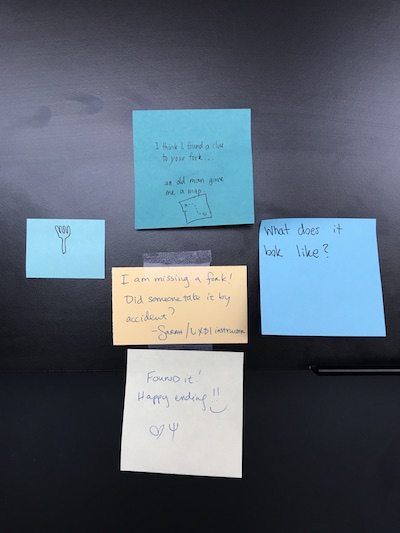 I think I found a clue
to your fork...
an old man gave
me a map.
What does it
look like?
I am missing a fork!
Did someone take it by
accident?
-Sarah/UXDI instructor
Found it!
Happy ending!!